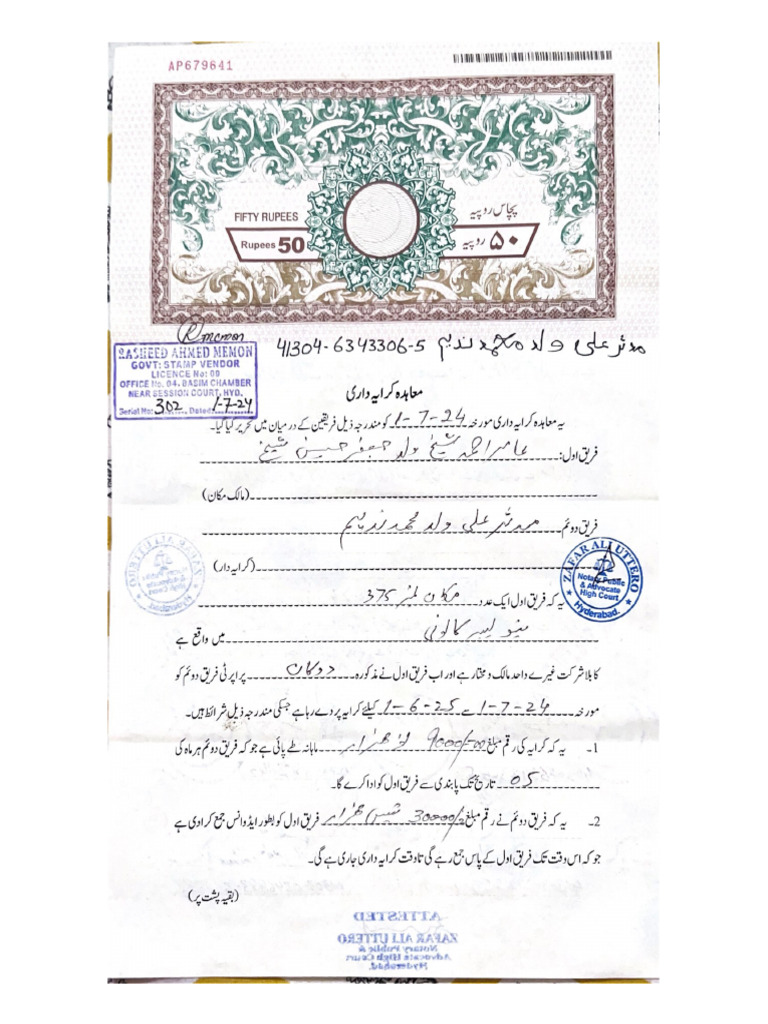 AP679641
FIFTY RUPEES
پچاس روپیہ
Rupees 50
۵۰ روپیہ
مدثر علی ولد محمد ندیم 41304-6343306-5
RASHEED AHMED MEMON
GOVT: STAMP VENDOR
LICENCE No: 09
OFFICE No. 04. BASIM CHAMBER
NEAR SESSION COURT, HYD.
Serial No: 302 Dated: 1-7-24
معاہدہ کرایہ داری
یہ معاہدہ کرایہ داری مورخہ 1-7-24 کو مندرجہ ذیل فریقین کے درمیان میں تحریر کیا گیا۔
فریق اول: عامر احمد شیخ ولد جعفر حسین شیخ
(مالک مکان)
فریق دوئم مدثر علی ولد محمد ندیم
(کرایہ دار)
ZAFAR ALI UTTERO
Notary Public
& Advocate
High Court
Hyderabad.
یہ کہ فریق اول ایک عدد مکان نمبر 375
کالونی میں واقع ہے
کا بلا شرکت غیرے واحد مالک و مختار ہے اور اب فریق اول نے مذکورہ دوکان پراپرٹی فریق دوئم کو
مورخہ 1-7-24 سے 1-6-25 کیلئے کرایہ پر دے رہا ہے جسکی مندرجہ ذیل شرائط ہیں۔
1۔ یہ کہ کرایہ کی رقم مبلغ 9000/= نو ہزار ماہانہ طے پائی ہے جو کہ فریق دوئم ہر ماہ کی
05 تاریخ تک پابندی سے فریق اول کو ادا کرے گا۔
2۔ یہ کہ فریق دوئم نے رقم مبلغ 30000/= تیس ہزار فریق اول کو بطور ایڈوانس جمع کرادی ہے
جو کہ اس وقت تک فریق اول کے پاس جمع رہے گی تاوقت کرایہ داری جاری ہے گی۔
(بقیہ پشت پر)
ATTESTED
ZAFAR ALI UTTERO
Notary Public &
Advocate High Court
Hyderabad.